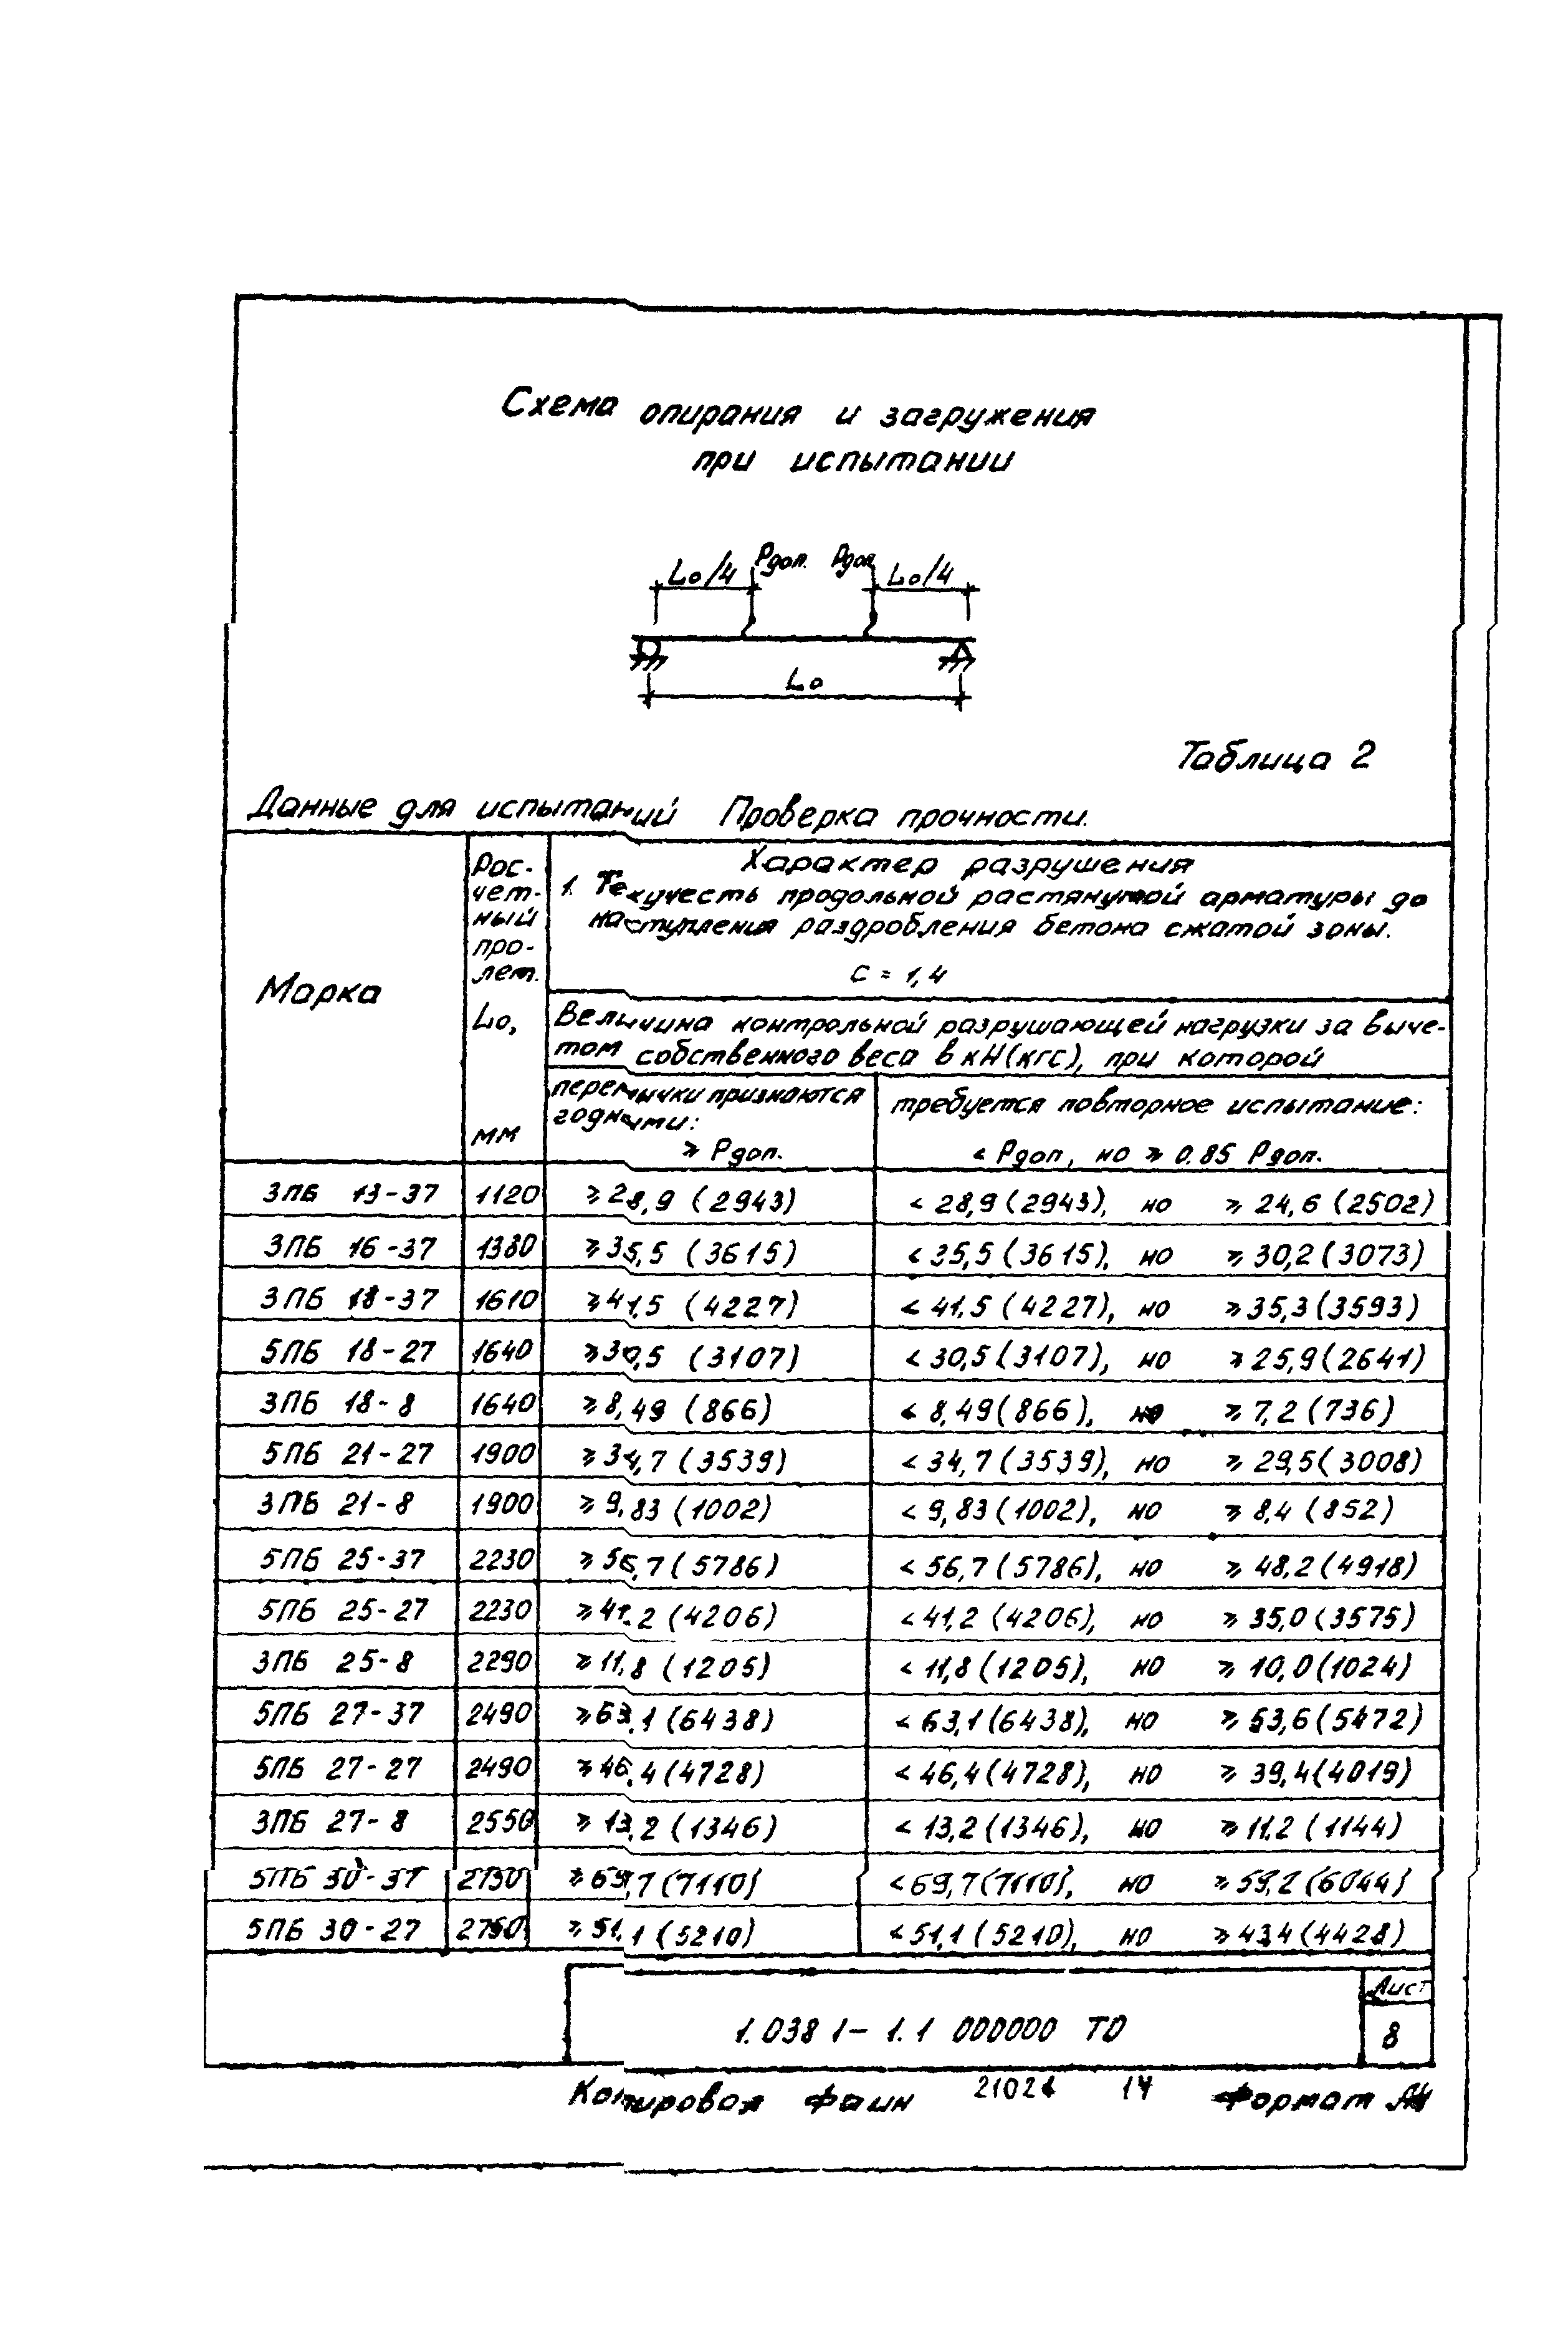 Схема опирания и загружения
при испытании
Lo/4 Рдоп. Рдоп. Lo/4
Lo
Таблица 2
Данные для испытаний Проверка прочности.
Марка
Рас-
чет-
ный
про-
лет.
Lo,
мм
Характер разрушения
1. Текучесть продольной растянутой арматуры до
наступления раздробления бетона сжатой зоны.
С = 1,4
Величина контрольной разрушающей нагрузки за выче-
том собственного веса в кН(кгс), при которой
перемычки признаются
годными:
≥ Рдоп.
требуется повторное испытание:
< Рдоп, но ≥ 0.85 Рдоп.
3ПБ 13-37 1120 ≥28,9 (2943) < 28,9 (2943), но ≥ 24,6 (2502)
3ПБ 16-37 1380 ≥35,5 (3615) < 35,5 (3615), но ≥ 30,2 (3073)
3ПБ 18-37 1610 ≥41,5 (4227) < 41,5 (4227), но ≥35,3 (3593)
5ПБ 18-27 1640 ≥30,5 (3107) < 30,5 (3107), но ≥25,9 (2641)
3ПБ 18-8 1640 ≥8,49 (866) < 8,49 (866), но ≥ 7,2 (736)
5ПБ 21-27 1900 ≥34,7 (3539) < 34,7 (3539), но ≥ 29,5 (3008)
3ПБ 21-8 1900 ≥9,83 (1002) < 9,83 (1002), но ≥ 8,4 (852)
5ПБ 25-37 2230 ≥56,7 (5786) < 56,7 (5786), но ≥ 48,2 (4918)
5ПБ 25-27 2230 ≥41,2 (4206) < 41,2 (4206), но ≥ 35,0 (3575)
3ПБ 25-8 2290 ≥11,8 (1205) < 11,8 (1205), но ≥ 10,0 (1024)
5ПБ 27-37 2490 ≥63,1 (6438) < 63,1 (6438), но ≥ 53,6 (5472)
5ПБ 27-27 2490 ≥46,4 (4728) < 46,4 (4728), но ≥ 39,4 (4019)
3ПБ 27-8 2550 ≥13,2 (1346) < 13,2 (1346), но ≥11,2 (1144)
5ПБ 30-37 ≥69,7 (7110) < 69,7 (7110), но ≥ 59,2 (6044)
5ПБ 30-27 ≥51,1 (5210) < 51,1 (5210), но ≥43,4 (4428)
1.038 1-1.1 000000 ТО
Лист
8
Копировал Фаин 14 Формат А4